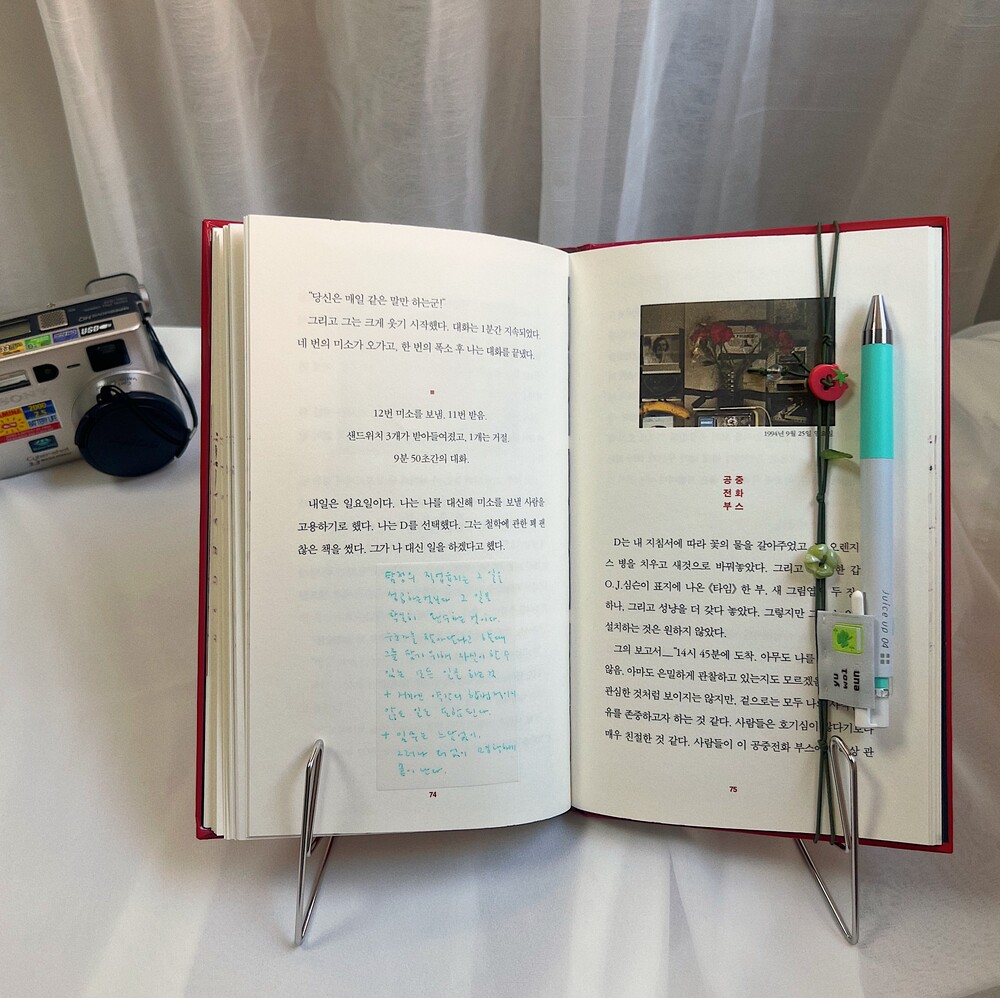 "당신은 매일 같은 말만 하는군!"
그리고 그는 크게 웃기 시작했다. 대화는 1분간 지속되었다.
네 번의 미소가 오가고, 한 번의 폭소 후 나는 대화를 끝냈다.
12번 미소를 보냄. 11번 받음.
샌드위치 3개가 받아들여졌고, 1개는 거절.
9분 50초간의 대화.
내일은 일요일이다. 나는 나를 대신해 미소를 보낼 사람을
고용하기로 했다. 나는 D를 선택했다. 그는 철학에 관한 꽤 괜
찮은 책을 썼다. 그가 나 대신 일을 하겠다고 했다.
탐정의 직업윤리는 그 일을
그 일을
완수하는 것이다.
위해 자신이 할 수
있는 모든 일을 하는 것
+ 약간의
않은 일도 포함된다.
+ 임무는 느닷없이,
그러나 모호하게
끝이 난다.
74
1994년 9월 25일
공중
전화
부스
D는 내 지침서에 따라 꽃의 물을 갈아주었고 오렌지
스 병을 치우고 새것으로 바꿔놓았다. 그리고 한 갑
O.J.심슨이 표지에 나온 《타임》 한 부, 새 그림엽 두 장
하나, 그리고 성냥을 더 갖다 놓았다. 그렇지만 그
설치하는 것은 원하지 않았다.
그의 보고서__"14시 45분에 도착. 아무도 나를
않음. 아마도 은밀하게 관찰하고 있는지도 모르겠
관심한 것처럼 보이지는 않지만, 겉으로는 모두 나
유를 존중하고자 하는 것 같다. 사람들은 호기심이 많다기보다
매우 친절한 것 같다. 사람들이 이 공중전화 부스에 상 관
75
Juice up 04
una
USB
Cyber-shot